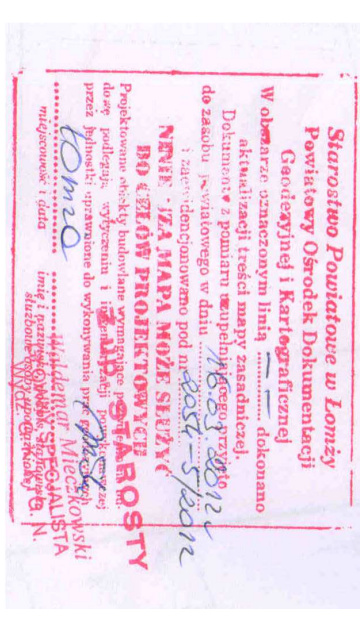 Starostwo Powiatowe w Łomży
Powiatowy Ośrodek Dokumentacji
Geodezyjnej i Kartograficznej
W obszarze oznaczonym linią ............ dokonano
aktualizacji treści mapy zasadniczej.
Dokumenty z pomiaru uzupełniającego przyjęto
do zasobu powiatowego w dniu 16.03.2012r
i zaewidencjonowano pod nr 2054-5/2012
NINIEJSZA MAPA MOŻE SŁUŻYĆ
DO CELÓW PROJEKTOWYCH
Projektowane obiekty budowlane wymagające
podlegają wytyczeniu i
przez jednostki uprawnione do wykonywania
Łomża
miejscowość i data
STAROSTY
Waldemar Mieczkowski
SPECJALISTA
imię i nazwisko